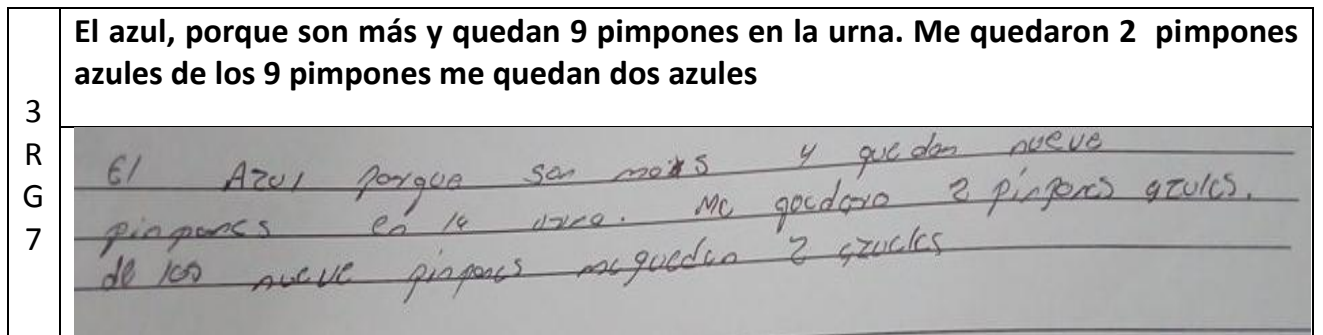 El azul, porque son más y quedan 9 pimpones en la urna. Me quedaron 2 pimpones
azules de los 9 pimpones me quedan dos azules
3
R
G
7
El Azul porque son mas y quedan nueve
pinpones en la urna. Me quedaro 2 pinpones azules.
de los nueve pinpones me quedan 2 azules